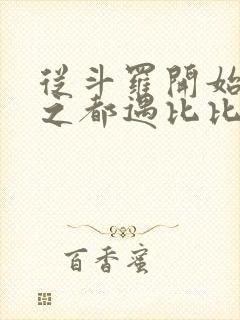 從斗羅開始
之都遇比比
百香蜜